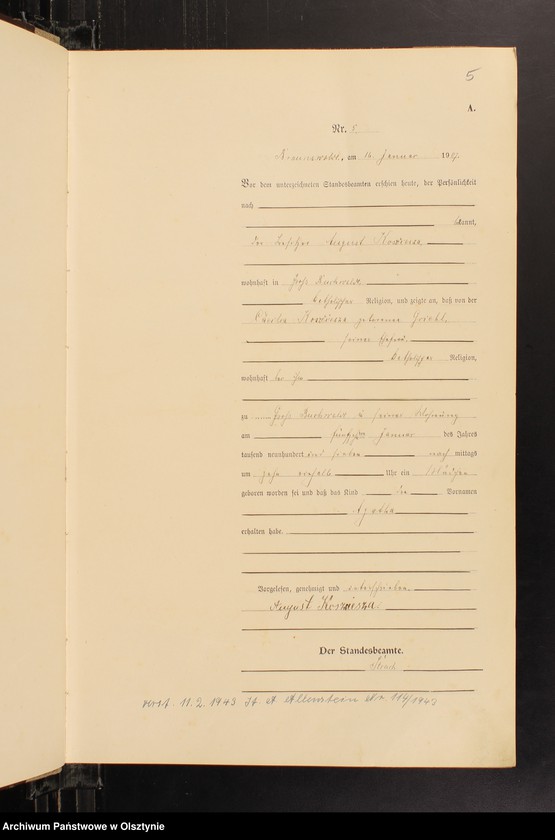 5
A.
Nr. 5.
am 16. Januar 1907.
Vor dem unterzeichneten Standesbeamten erschien heute, der Persönlichkeit
nach
kannt,
der Besitzer August
wohnhaft in Groß Buchwalde
katholischer Religion, und zeigte an, daß von der
geborene
seiner Ehefrau
katholischer Religion,
wohnhaft bei ihm
zu Groß Buchwalde in seiner Wohnung
am Januar des Jahres
tausend neunhundert und sieben nach mittags
um Uhr ein Mädchen
geboren worden sei und daß das Kind Vornamen
Agatha
erhalten habe.
Vorgelesen, genehmigt und unterschrieben.
August
Der Standesbeamte.
verst. 11.2.1943 St. A. Allenstein Nr. 114/1943
Archiwum Państwowe w Olsztynie